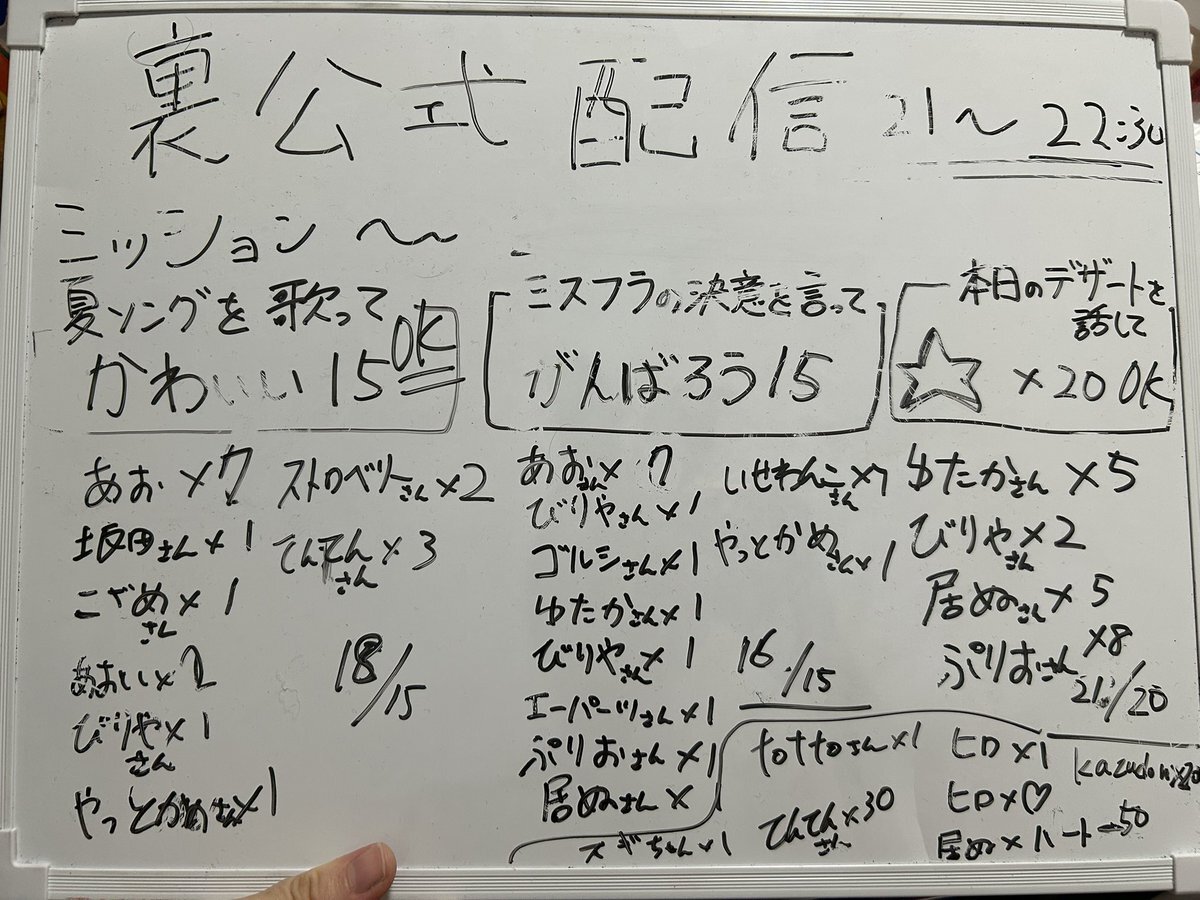 裏公式配信 21～22:30
ミッション～
夏ソングを歌って
かわいい15 OK
あお×7
坂田さん×1
こざめさん×1
×2
びりやさん×1
やっとかめさん×1
ストロベリーさん×2
てんてんさん×3
18/15
ミスフラの決意を言って
がんばろう15
あおさん×7
びりやさん×1
ゴルシさん×1
ゆたかさん×1
びりやさん×1
エーパーツさん×1
ぷりおさん×1
居ぬさん×
いせわんこさん×7
やっとかめさん×1
16/15
本日のデザートを
話して
☆×20 OK
ゆたかさん×5
びりやさん×2
居ぬさん×5
ぷりおさん×8
21/20
スギちゃん×1
tottoさん×1
てんてんさん×30
ヒロ×1
ヒロ×♡
居ぬ×ハート→50